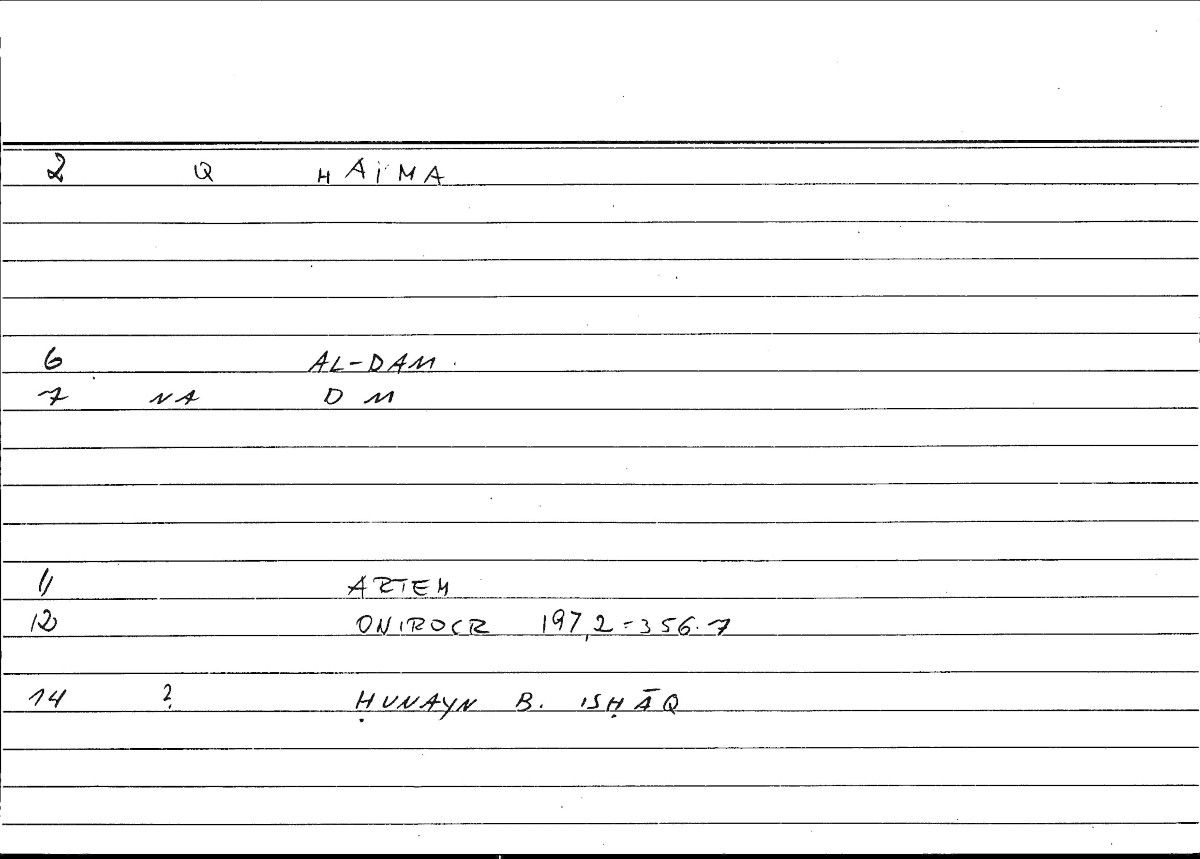 2 Q HAIMA
6 AL-DAM
7 NA D M
11 ARTEM
12 ONIROCR 197,2=356.7
14 ? ḤUNAYN B. ISḤĀQ